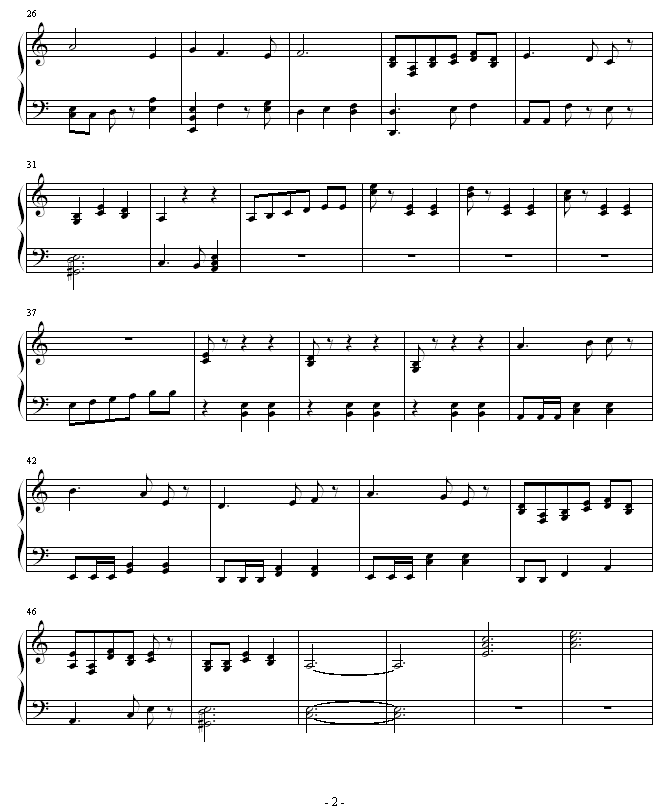 26
31
37
42
46
- 2 -